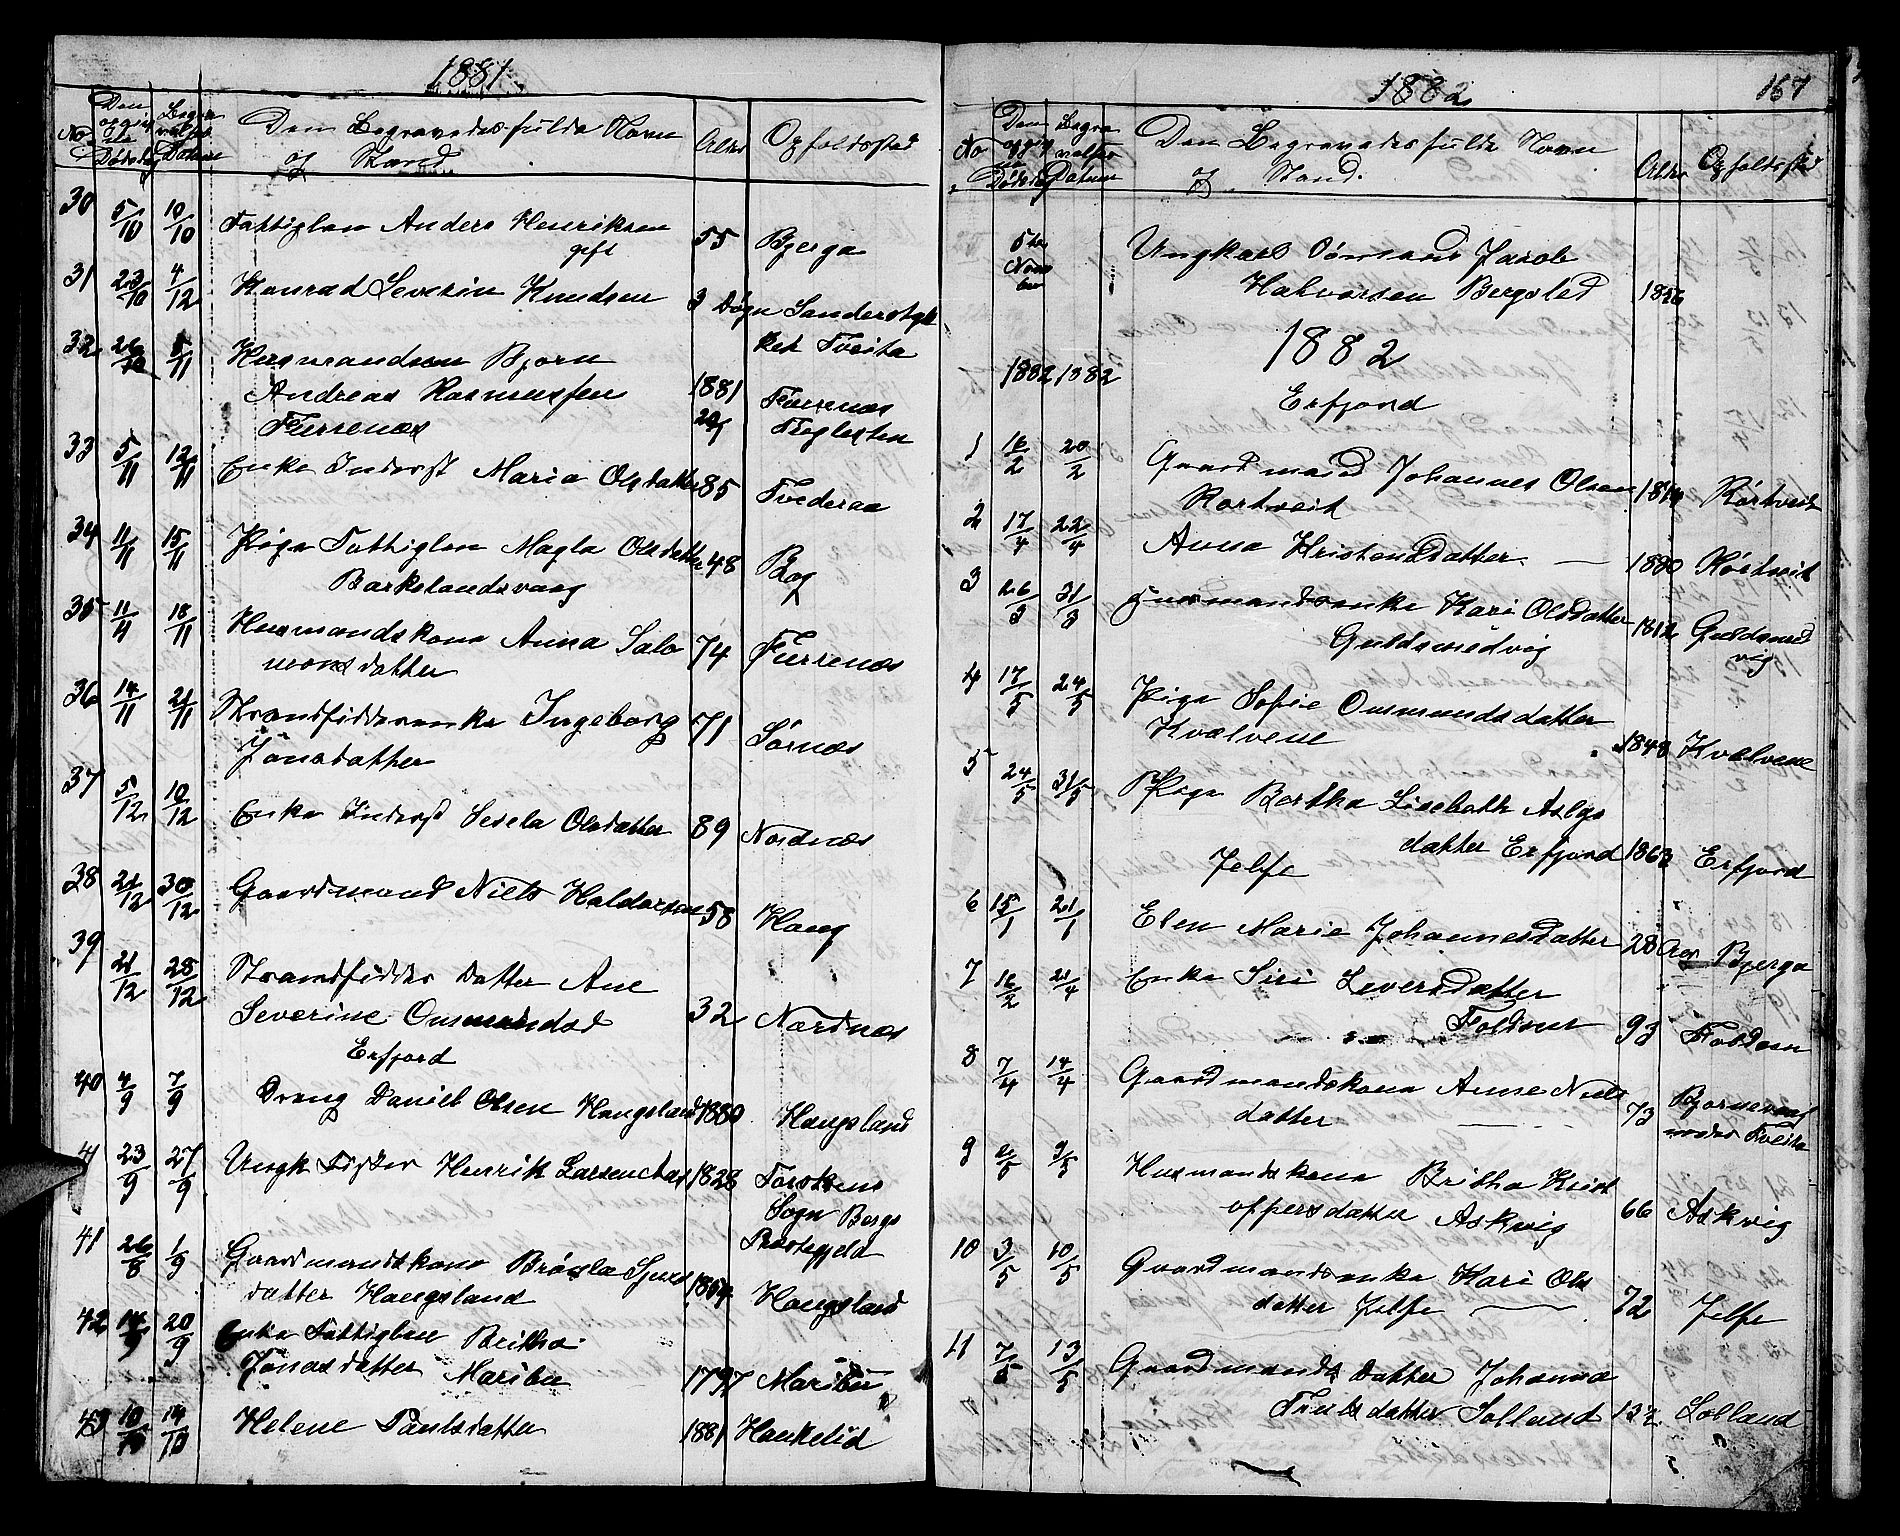 1881
No. Den opgivne Dødsdag Begravelses Datum Den Begravedes fulde Navn og Stand Alder Opholdssted
30 5/10 10/10 Fattiglem Anders Henriksen 55 Bjerga
gift
31 23/10 4/12 Konrad Severin Knudsen 3 Døgn Sanderstyk
ket Tveita
32 26/10 5/11 Husmandssøn Bjørn
Andreas Rasmussen 1881 Furrenæs
Furrenæs
33 5/11 12/11 Enke Inderst Maria Olsdatter 85 Tvederaa
34 11/11 15/11 Pige Fattiglem Magla Olsdatter 48 Bog
Barkelandsvaag
35 11/11 18/11 Husmandskone Anna Salo 74 Furrenæs
monsdatter
36 14/11 21/11 Strandsidderenke Ingeborg 71 Sørnæs
Jonasdatter
37 5/12 10/12 Enke Inderst Sesela Olsdatter 89 Nordnæs
38 21/12 30/12 Gaardmand Niels Haldorsen 58 Haug
39 21/12 28/12 Strandsidder datter Ane
Severine Ommundsd 32 Nordnæs
Erfjord
40 4/9 7/9 Dreng Daniel Olsen Haugsland 1880 Haugsland
41 23/9 27/9 Ungk Fisker Henrik Larsen 1828
Sogn Bergs
Præstegjeld
41 26/8 1/9 Gaardmandskone Brønla
datter Haugsland Haugsland
42 14/9 20/9 Enke Fattiglem Britha
Jonasdatter Maribu 1797 Maribu
43 10/10 14/10 Helene Paulsdatter 1881 Hankelid
1882 167
No. Den opgivne Dødsdag Begravelses Datum Den Begravedes fulde Navn og Stand. Alder Opholdssted
5te Novem ber Ungkarl Sømand Jacob
Halvorsen Bergsled 1856
1882
1882 1882
Erfjord
1 16/2 20/2 Gaardmand Johannes Olsen
Rørtveit Rørtveit
2 17/4 22/4 Anna Kristensdatter — 1880
3 26/3 31/3 Husmandsenke Kari Olsdatter 1812 Guldsmed
Guldsmedvig vig
4 17/5 24/5 Pige Sofie Ommundsdatter
Kvalvene 1848 Kvalvene
5 24/5 31/5 Pige Bertha Lisebeth Aslgs
datter Erfjord 1863 Erfjord
Jelse
6 15/1 21/1 Elen Marie Johannesdatter 28 Aar Bjerga
7 16/2 21/4 Enke Siri Siversdatter
Foldøen 93 Foldøen
8 7/4 14/4 Gaardmandskone Anne Niels
datter 73 Bjørnevaag
under Tveita
9 2/5 9/5 Husmandskone Britha Krist
offersdatter Askvig 66 Askvig
10 3/5 10/5 Gaardmandsenke Kari Ols
datter Jelse 72 Jelse
11 7/5 13/5 Gaardmands datter Johanna
Trulsdatter Solland 13 Solland